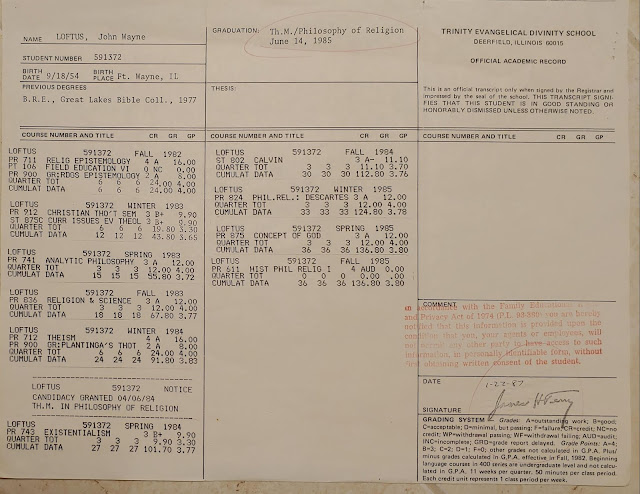 NAME LOFTUS, John Wayne
STUDENT NUMBER 591372
BIRTH DATE 9/18/54 BIRTH PLACE Ft. Wayne, IL
PREVIOUS DEGREES
B.R.E., Great Lakes Bible Coll., 1977
GRADUATION: Th.M./Philosophy of Religion
June 14, 1985
THESIS:
TRINITY EVANGELICAL DIVINITY SCHOOL
DEERFIELD, ILLINOIS 60015
OFFICIAL ACADEMIC RECORD
This is an official transcript only when signed by the Registrar and
impressed by the seal of the school. THIS TRANSCRIPT SIGNI-
FIES THAT THIS STUDENT IS IN GOOD STANDING OR
HONORABLY DISMISSED UNLESS OTHERWISE NOTED.
COURSE NUMBER AND TITLE CR GR GP
LOFTUS 591372 FALL 1982
PR 711 RELIG EPISTEMOLOGY 4 A 16.00
PT 106 FIELD EDUCATION VI 0 NC 0.00
PR 900 GR:RDGS EPISTEMOLOGY 2 A 8.00
QUARTER TOT 6 6 6 24.00 4.00
CUMULAT DATA 6 6 6 24.00 4.00
LOFTUS 591372 WINTER 1983
PR 912 CHRISTIAN THO'T SEM 3 B+ 9.90
ST 875C CURR ISSUES EV THEOL 3 B+ 9.90
QUARTER TOT 6 6 6 19.80 3.30
CUMULAT DATA 12 12 12 43.80 3.65
LOFTUS 591372 SPRING 1983
PR 741 ANALYTIC PHILOSOPHY 3 A 12.00
QUARTER TOT 3 3 3 12.00 4.00
CUMULAT DATA 15 15 15 55.80 3.72
LOFTUS 591372 FALL 1983
PR 836 RELIGION & SCIENCE 3 A 12.00
QUARTER TOT 3 3 3 12.00 4.00
CUMULAT DATA 18 18 18 67.80 3.77
LOFTUS 591372 WINTER 1984
PR 712 THEISM 4 A 16.00
PR 900 GR:PLANTINGA'S THOT 2 A 8.00
QUARTER TOT 6 6 6 24.00 4.00
CUMULAT DATA 24 24 24 91.80 3.83
LOFTUS 591372 NOTICE
CANDIDACY GRANTED 04/06/84
TH.M. IN PHILOSOPHY OF RELIGION
LOFTUS 591372 SPRING 1984
PR 743 EXISTENTIALISM 3 B+ 9.90
QUARTER TOT 3 3 3 9.90 3.30
CUMULAT DATA 27 27 27 101.70 3.77
COURSE NUMBER AND TITLE CR GR GP
LOFTUS 591372 FALL 1984
ST 802 CALVIN 3 A- 11.10
QUARTER TOT 3 3 3 11.10 3.70
CUMULAT DATA 30 30 30 112.80 3.76
LOFTUS 591372 WINTER 1985
PR 824 PHIL.REL.: DESCARTES 3 A 12.00
QUARTER TOT 3 3 3 12.00 4.00
CUMULAT DATA 33 33 33 124.80 3.78
LOFTUS 591372 SPRING 1985
PR 875 CONCEPT OF GOD 3 A 12.00
QUARTER TOT 3 3 3 12.00 4.00
CUMULAT DATA 36 36 36 136.80 3.80
LOFTUS 591372 FALL 1985
PR 611 HIST PHIL RELIG I 4 AUD 0.00
QUARTER TOT 0 0 0 0.00 .00
CUMULAT DATA 36 36 36 136.80 3.80
COURSE NUMBER AND TITLE CR GR GP
COMMENT
In accordance with the Family Educational
and Privacy Act of 1974 (P.L. 93-380) you are hereby
notified that this information is provided upon the
condition that you, your agents or employees, will
not permit any other party to have access to such
information, in personally identifiable form, without
first obtaining written consent of the student.
DATE 1-22-87
SIGNATURE
GRADING SYSTEM Grades: A=outstanding work; B=good;
C=acceptable; D=minimal, but passing; F=failure; CR=credit; NC=no
credit; WP=withdrawal passing; WF=withdrawal failing; AUD=audit;
INC=incomplete; GRD=grade report delayed. Grade Points: A=4;
B=3; C=2; D=1; F=0; other grades not calculated in G.P.A. Plus/
minus grades calculated in G.P.A. effective in Fall, 1982. Beginning
language courses in 400 series are undergraduate level and not calcu-
lated in G.P.A. 11 weeks per quarter. 50 minutes per class period.
Each credit unit represents 1 class period per week.